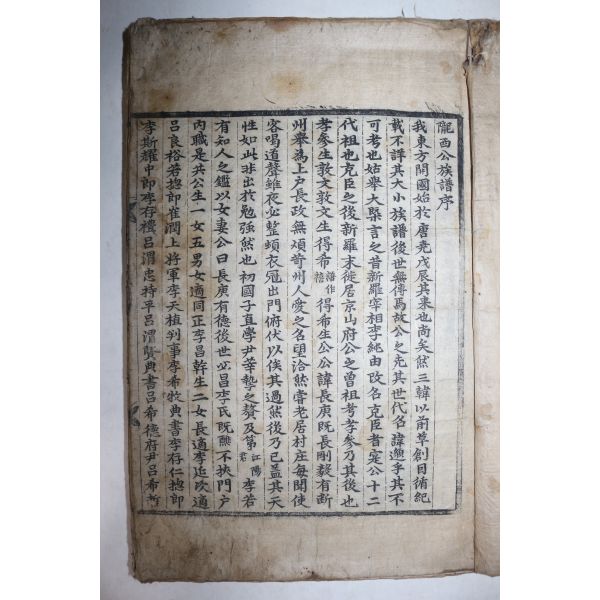 隴西公族譜序
我東方開國始於唐堯戊辰其來也尙矣然三韓以前草創目循紀
載不詳其大小族譜後世無傳焉故公之先其世代名諱邈乎其不
可考也姑擧大槩言之昔新羅宰相李純由改名克臣者寔公十二
代祖也克臣之後新羅末徙居京山府公之曾祖考孝參乃其後也
孝參生敦文敦文生得希譜作得禧得希生公公諱長庚旣長剛毅有斷
州擧爲上戶長政無煩苛州人愛之名望洽然嘗老居村庄每聞使
客喝道聲雖夜必整頓衣冠出門俯伏以俟其過然後乃已盖其天
性如此非出於勉强然也初國子直學尹莘摯之贅及第江陽君李若
有知人之鑑以女妻公曰長庚有德後世必昌李氏旣醮不挾門戶
內職是共公生一女五男女適同正李昌幹生二女長適李近次適
呂良裕若摠郎崔潤上將軍李天植判事李希牧典書李存仁摠郎
李斯耀中郎李存禮呂渭忠持平呂渭龔典書呂希德府尹呂希